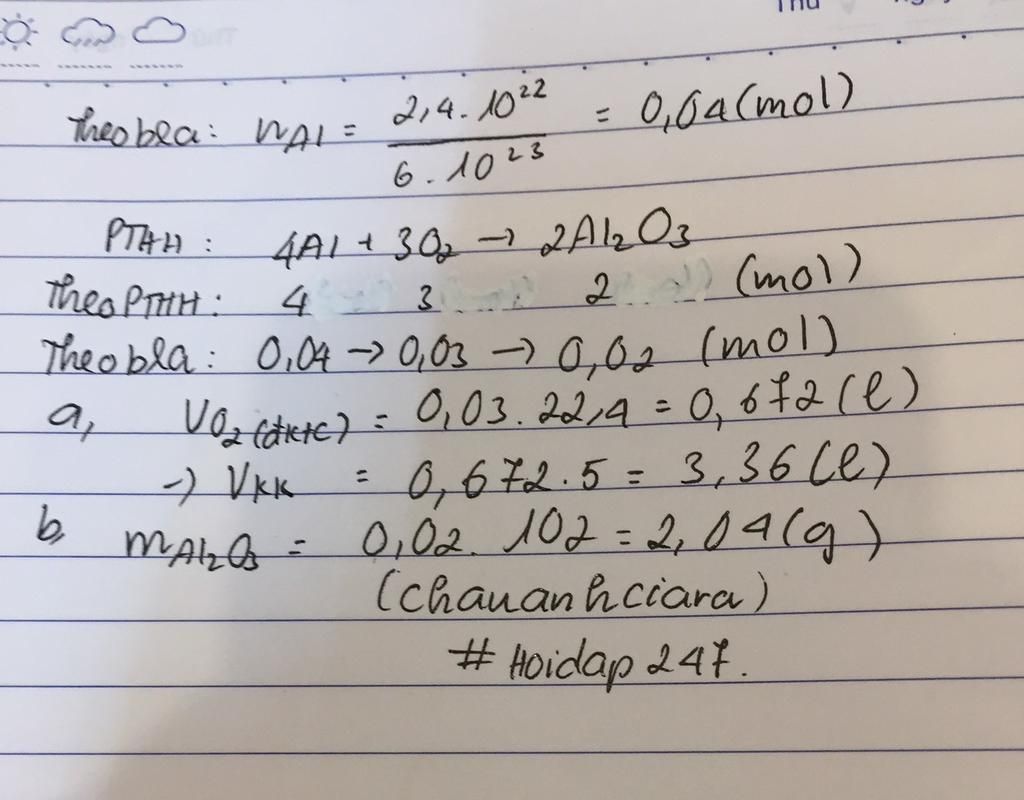 Thu
Theo bla: nAl = 2,4.10²² / 6.10²³ = 0,04 (mol)
PTHH: 4Al + 3O₂ → 2Al₂O₃
Theo PTHH: 4 3 2 (mol)
Theo bla: 0,04 → 0,03 → 0,02 (mol)
a, VO₂(đktc) = 0,03.22,4 = 0,672 (l)
→ Vkk = 0,672.5 = 3,36 (l)
b, mAl₂O₃ = 0,02.102 = 2,04 (g)
(chauanhciara)
# Hoidap 247.